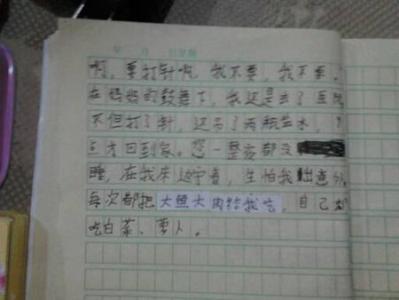 年 月 日 星期
啊,要打针啊,我不要,我不要。
在妈妈的鼓舞下,我还是去了医院
不但打了针,还吊了两瓶盐水,
才回到家。您一整夜都没
睡,在我床边守着,生怕我出意外
每次都把大鱼大肉给我吃,自己
吃白菜、萝卜。